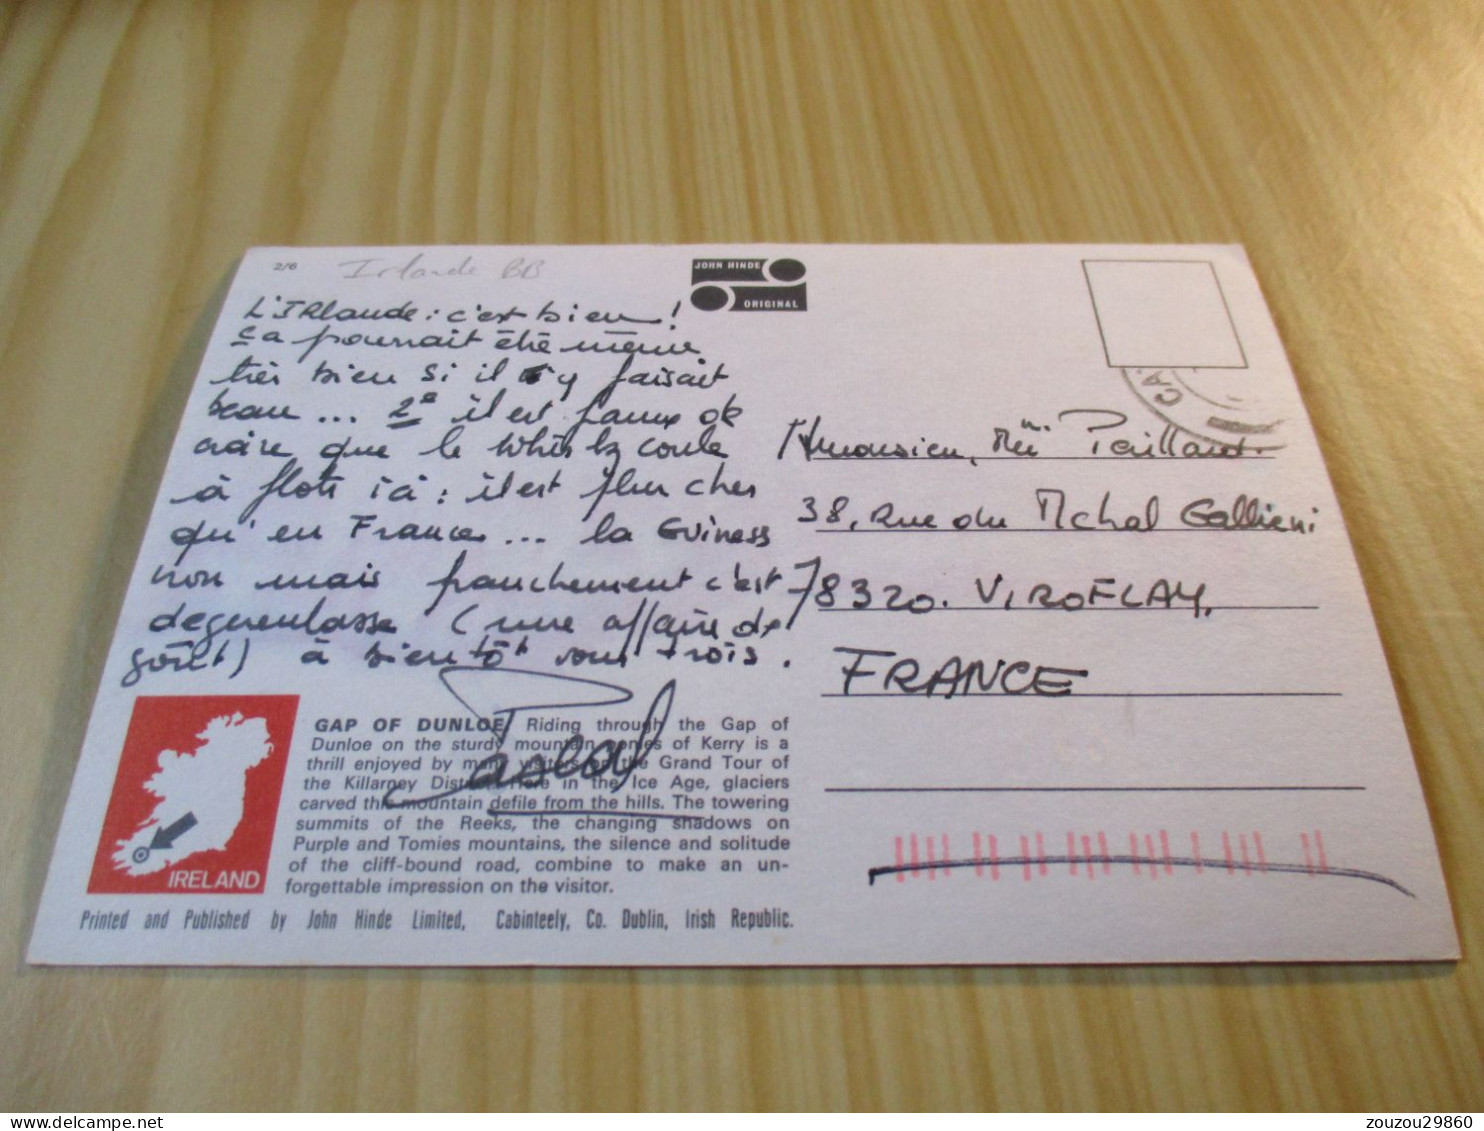 2/6 Irlande BB
JOHN HINDE
ORIGINAL
L'IRlande : c'est bien !
ça pourrait être même
très bien si il y faisait
beau ... 2e il est faux de
croire que le whisky coule
à flots ici : il est plus cher
qu'en France ... la Guiness
non mais franchement c'est
degueulasse (une affaire de
goût) à bientôt vous trois .
Pascal
Monsieur, Paillard.
38, Rue du Mchal Gallieni
78320. VIROFLAY.
FRANCE
CA
IRELAND
GAP OF DUNLOE, Riding through the Gap of
Dunloe on the sturdy mountain ponies of Kerry is a
thrill enjoyed by many visitors on the Grand Tour of
the Killarney District. Here in the Ice Age, glaciers
carved this mountain defile from the hills. The towering
summits of the Reeks, the changing shadows on
Purple and Tomies mountains, the silence and solitude
of the cliff-bound road, combine to make an un-
forgettable impression on the visitor.
Printed and Published by John Hinde Limited, Cabinteely, Co. Dublin, Irish Republic.
zouzou29860